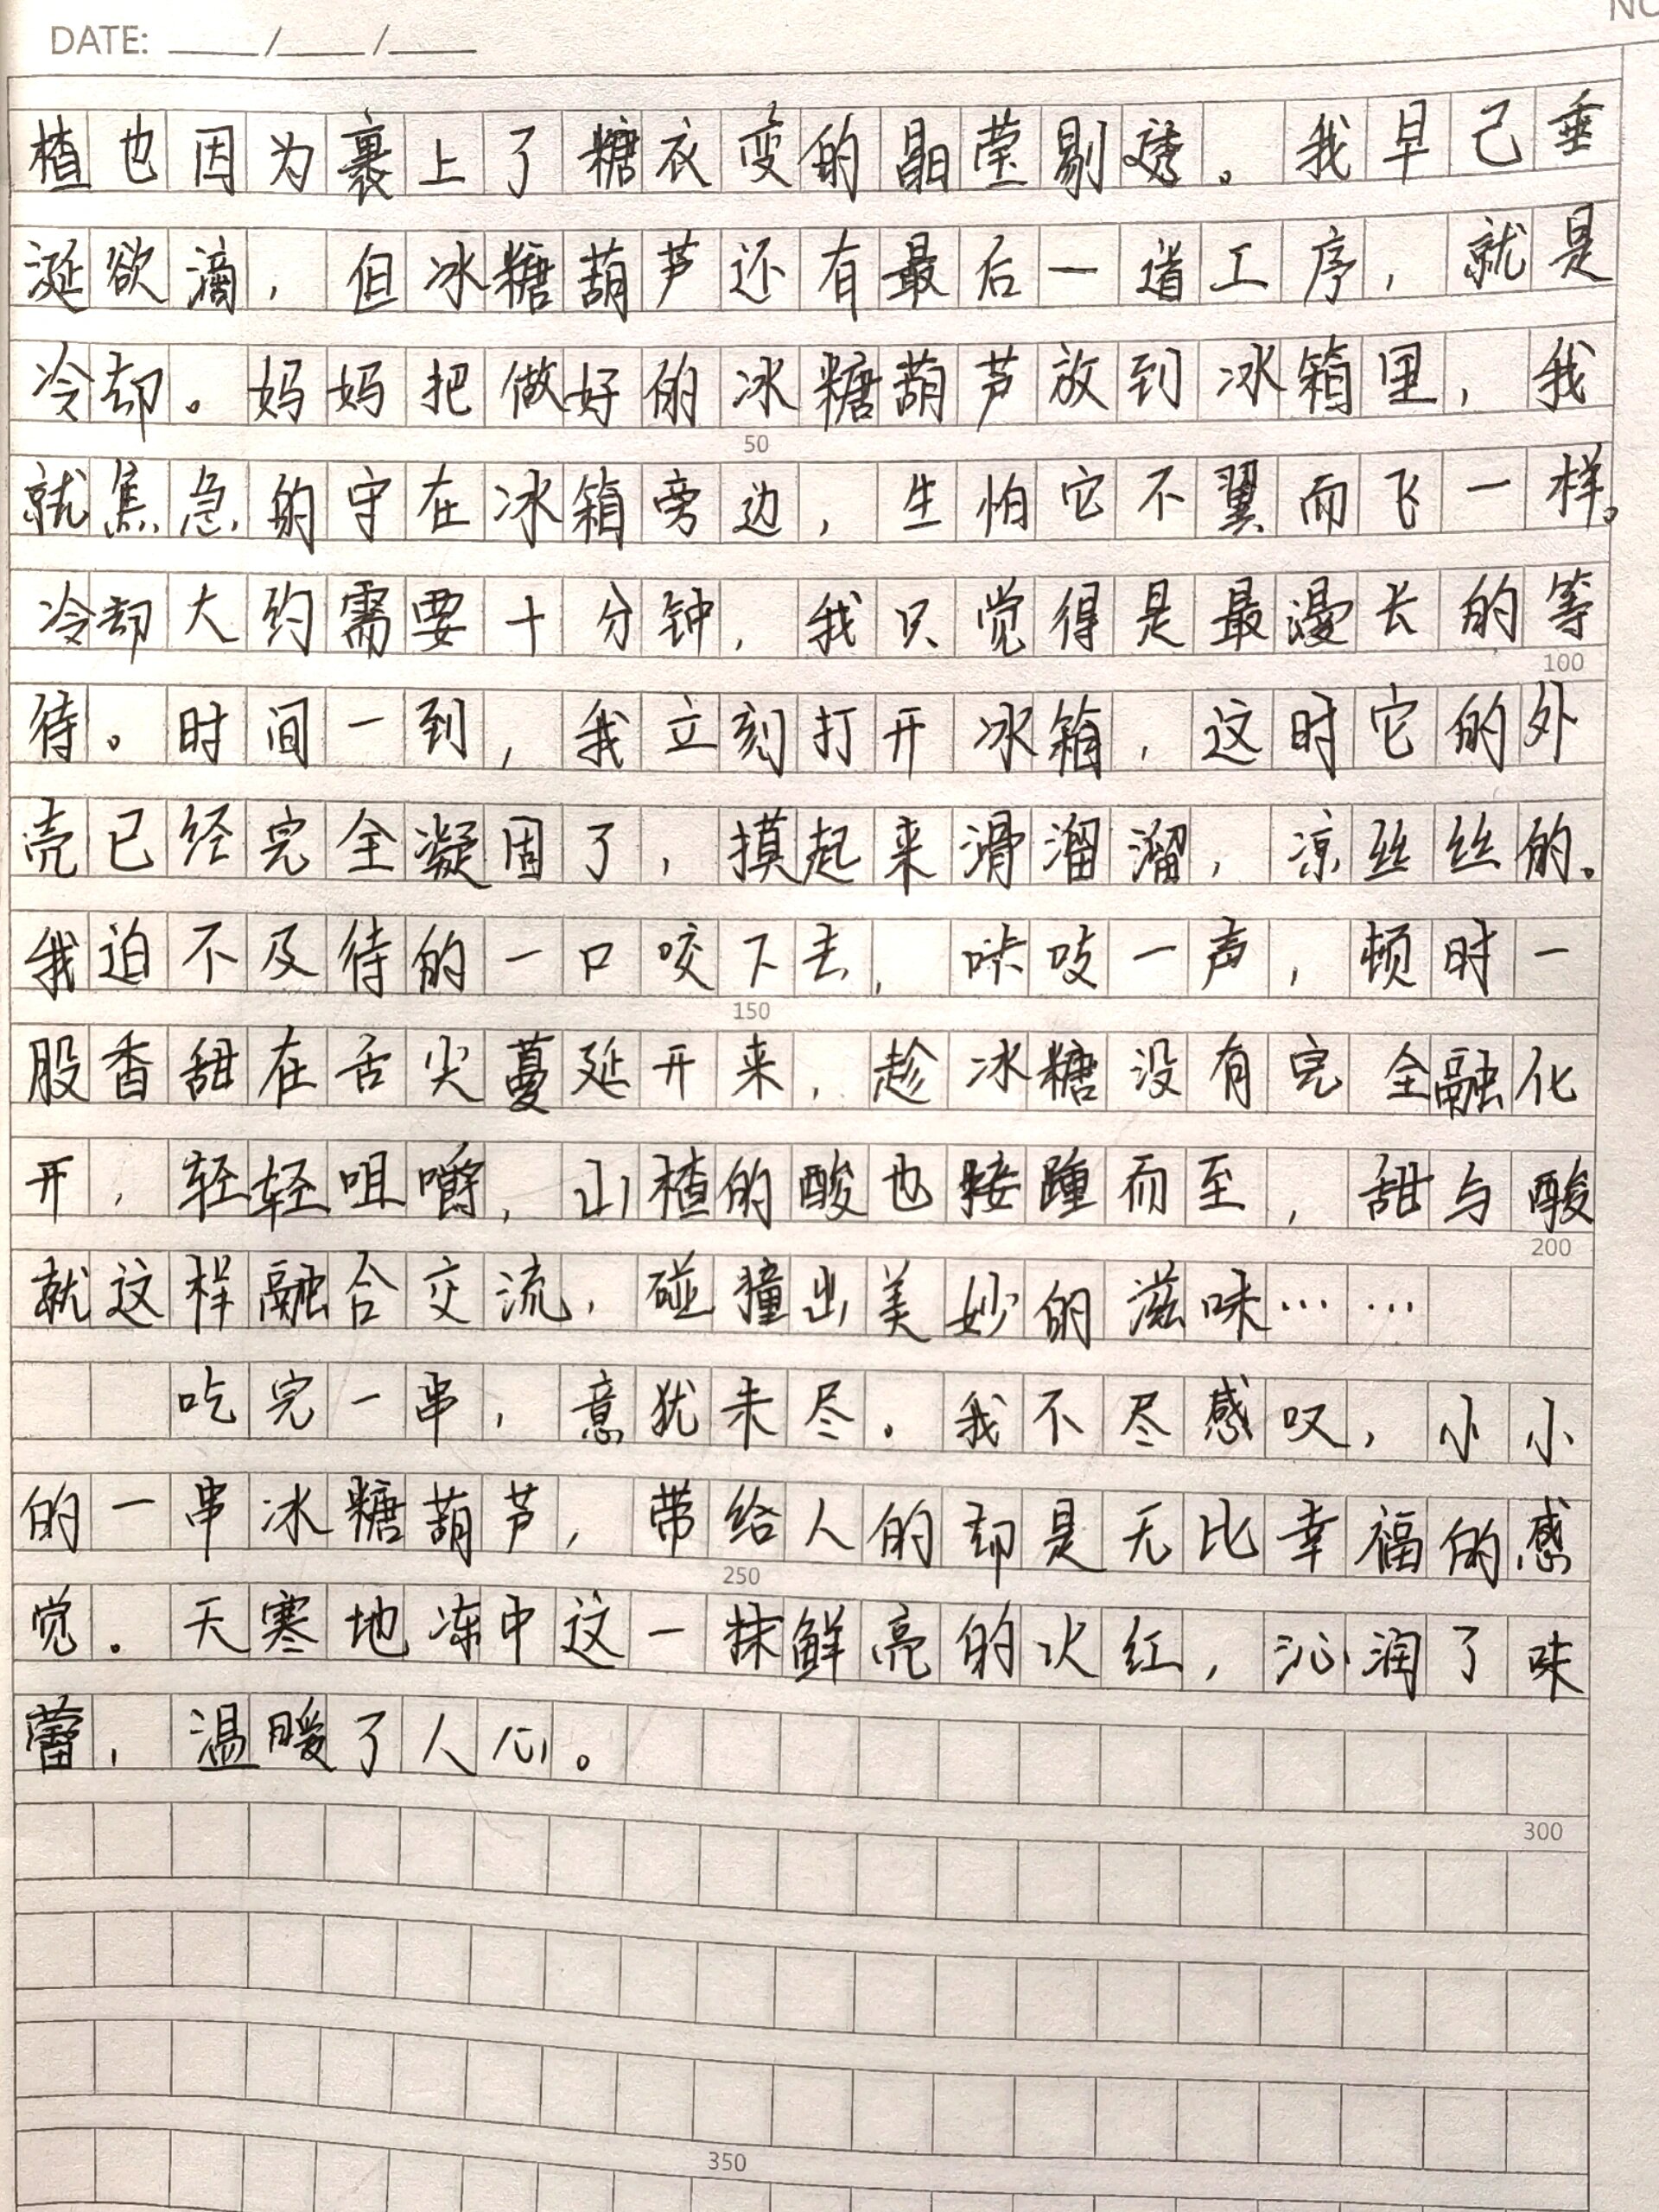 DATE: ____/____/____
NO
楂也因为裹上了糖衣变的晶莹剔透。我早己垂
涎欲滴，但冰糖葫芦还有最后一道工序，就是
冷却。妈妈把做好的冰糖葫芦放到冰箱里，我
50
就焦急的守在冰箱旁边，生怕它不翼而飞一样。
冷却大约需要十分钟，我只觉得是最漫长的等
100
待。时间一到，我立刻打开冰箱，这时它的外
壳已经完全凝固了，摸起来滑溜溜，凉丝丝的。
我迫不及待的一口咬下去，咔吱一声，顿时一
150
股香甜在舌尖蔓延开来，趁冰糖没有完全融化
开，轻轻咀嚼，山楂的酸也接踵而至，甜与酸
200
就这样融合交流，碰撞出美妙的滋味……
吃完一串，意犹未尽。我不尽感叹，小小
的一串冰糖葫芦，带给人的却是无比幸福的感
250
觉。天寒地冻中这一抹鲜亮的火红，沁润了味
蕾，温暖了人心。
300
350